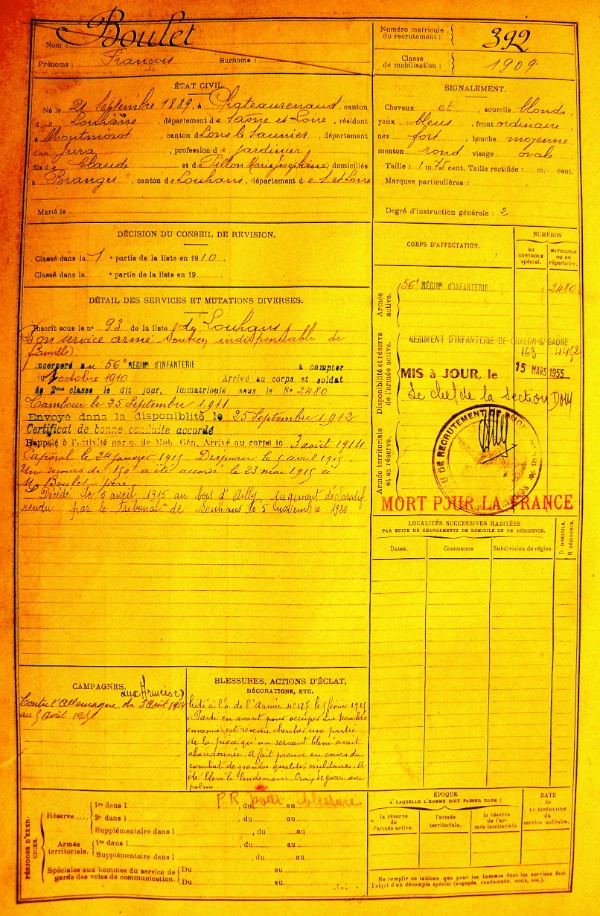 Nom : Boulet
Prénoms : François Surnoms :
Numéro matricule du recrutement : 392
Classe de mobilisation : 1909
ÉTAT CIVIL.
Né le 21 Septembre 1889, à Chateaurenaud, canton
d e Louhans, département d e Saône et Loire, résidant
à Montmorot canton de Lons le Saunier, département
du Jura, profession de Jardinier
fils de Claude et de domiciliés
à Branges, canton de Louhans, département d e S. et Loire
Marié le
SIGNALEMENT.
Cheveux et sourcils blonds
yeux bleus, front ordinaire,
nez fort, bouche moyenne
menton rond visage ovale
Taille : 1 m. 75 cent. Taille rectifiée : m. cent.
Marques particulières :
Degré d'instruction générale : 2
DÉCISION DU CONSEIL DE REVISION.
Classé dans la 1 partie de la liste en 1910.
Classé dans la partie de la liste en 19
DÉTAIL DES SERVICES ET MUTATIONS DIVERSES.
Inscrit sous le n° 93 de la liste de Louhans
Bon service armé Soutien indispensable de
famille
Incorporé au 56e RÉGIMt D'INFANTERIE à compter
du octobre 1910 Arrivé au corps et soldat
de 2me classe le dit jour, immatriculé sous le No 2480
Tambour le 25 Septembre 1911
Envoyé dans la disponibilité le 25 Septembre 1912
Certificat de bonne conduite accordé
Rappelé à l'activité par o. de Mob. Gén. Arrivé au corps le 3 août 1914
Caporal le 24 Janvier 1915 Disparu le 5 avril 1915
Un secours de 150f a été accordé le 23 mai 1915 à
Mr Boulet père
Décédé le 5 avril 1915 au bois d'Ailly, jugement déclaratif
rendu par le Tribunal de Louhans le 5 novembre 1920
CORPS D'AFFECTATION.
NUMÉROS
AU CONTRÔLE spécial.
MATRICULE OU DU répertoire.
Armée active.
56e RÉGIMt D'INFANTERIE 2480
Disponibilité et réserve de l'armée active.
RÉGIMENT D'INFANTERIE DE CHALON-S/-SAÔNE
163
MIS à JOUR, le 15 MARS 1955
Le chef de la section
Armée territoriale et sa réserve.
MORT POUR LA FRANCE
LOCALITÉS SUCCESSIVES HABITÉES
PAR SUITE DE CHANGEMENTS DE DOMICILE OU DE RÉSIDENCE.
Dates. Communes Subdivision de région. D. DOMICILE. R. RÉSIDENCE.
CAMPAGNES.
aux Armées
Contre l'Allemagne du 3 août 1914
au 5 avril 1915
BLESSURES, ACTIONS D'ÉCLAT,
DÉCORATIONS, ETC.
Cité à l'o. de l'Armée n° 127 le 5 février 1915
en avant pour occuper une tranchée
ennemie est revenu chercher une partie
de la pièce qu'un servant blessé avait
abandonnée. A fait preuve au cours du
combat de grandes qualités militaires. A
été blessé le lendemain. Croix de guerre avec
palme
P.R. pour blessure
PÉRIODES D'EXERCICES.
Réserve
1re dans l , du au
2e dans l , du au
Supplémentaire dans l , du au
Armée territoriale.
1re dans l , du au
Supplémentaire dans l , du au
Spéciales aux hommes du service de garde des voies de communication.
Du au
Du au
ÉPOQUE
À LAQUELLE L'HOMME DOIT PASSER DANS :
la réserve de l'armée active.
l'armée territoriale.
la réserve de l'armée territoriale
DATE
DE LA LIBÉRATION du service militaire.
Ne remplir ce tableau que pour les hommes dont les services font
l'objet d'un décompte spécial (engagés, condamnés, omis, etc.).